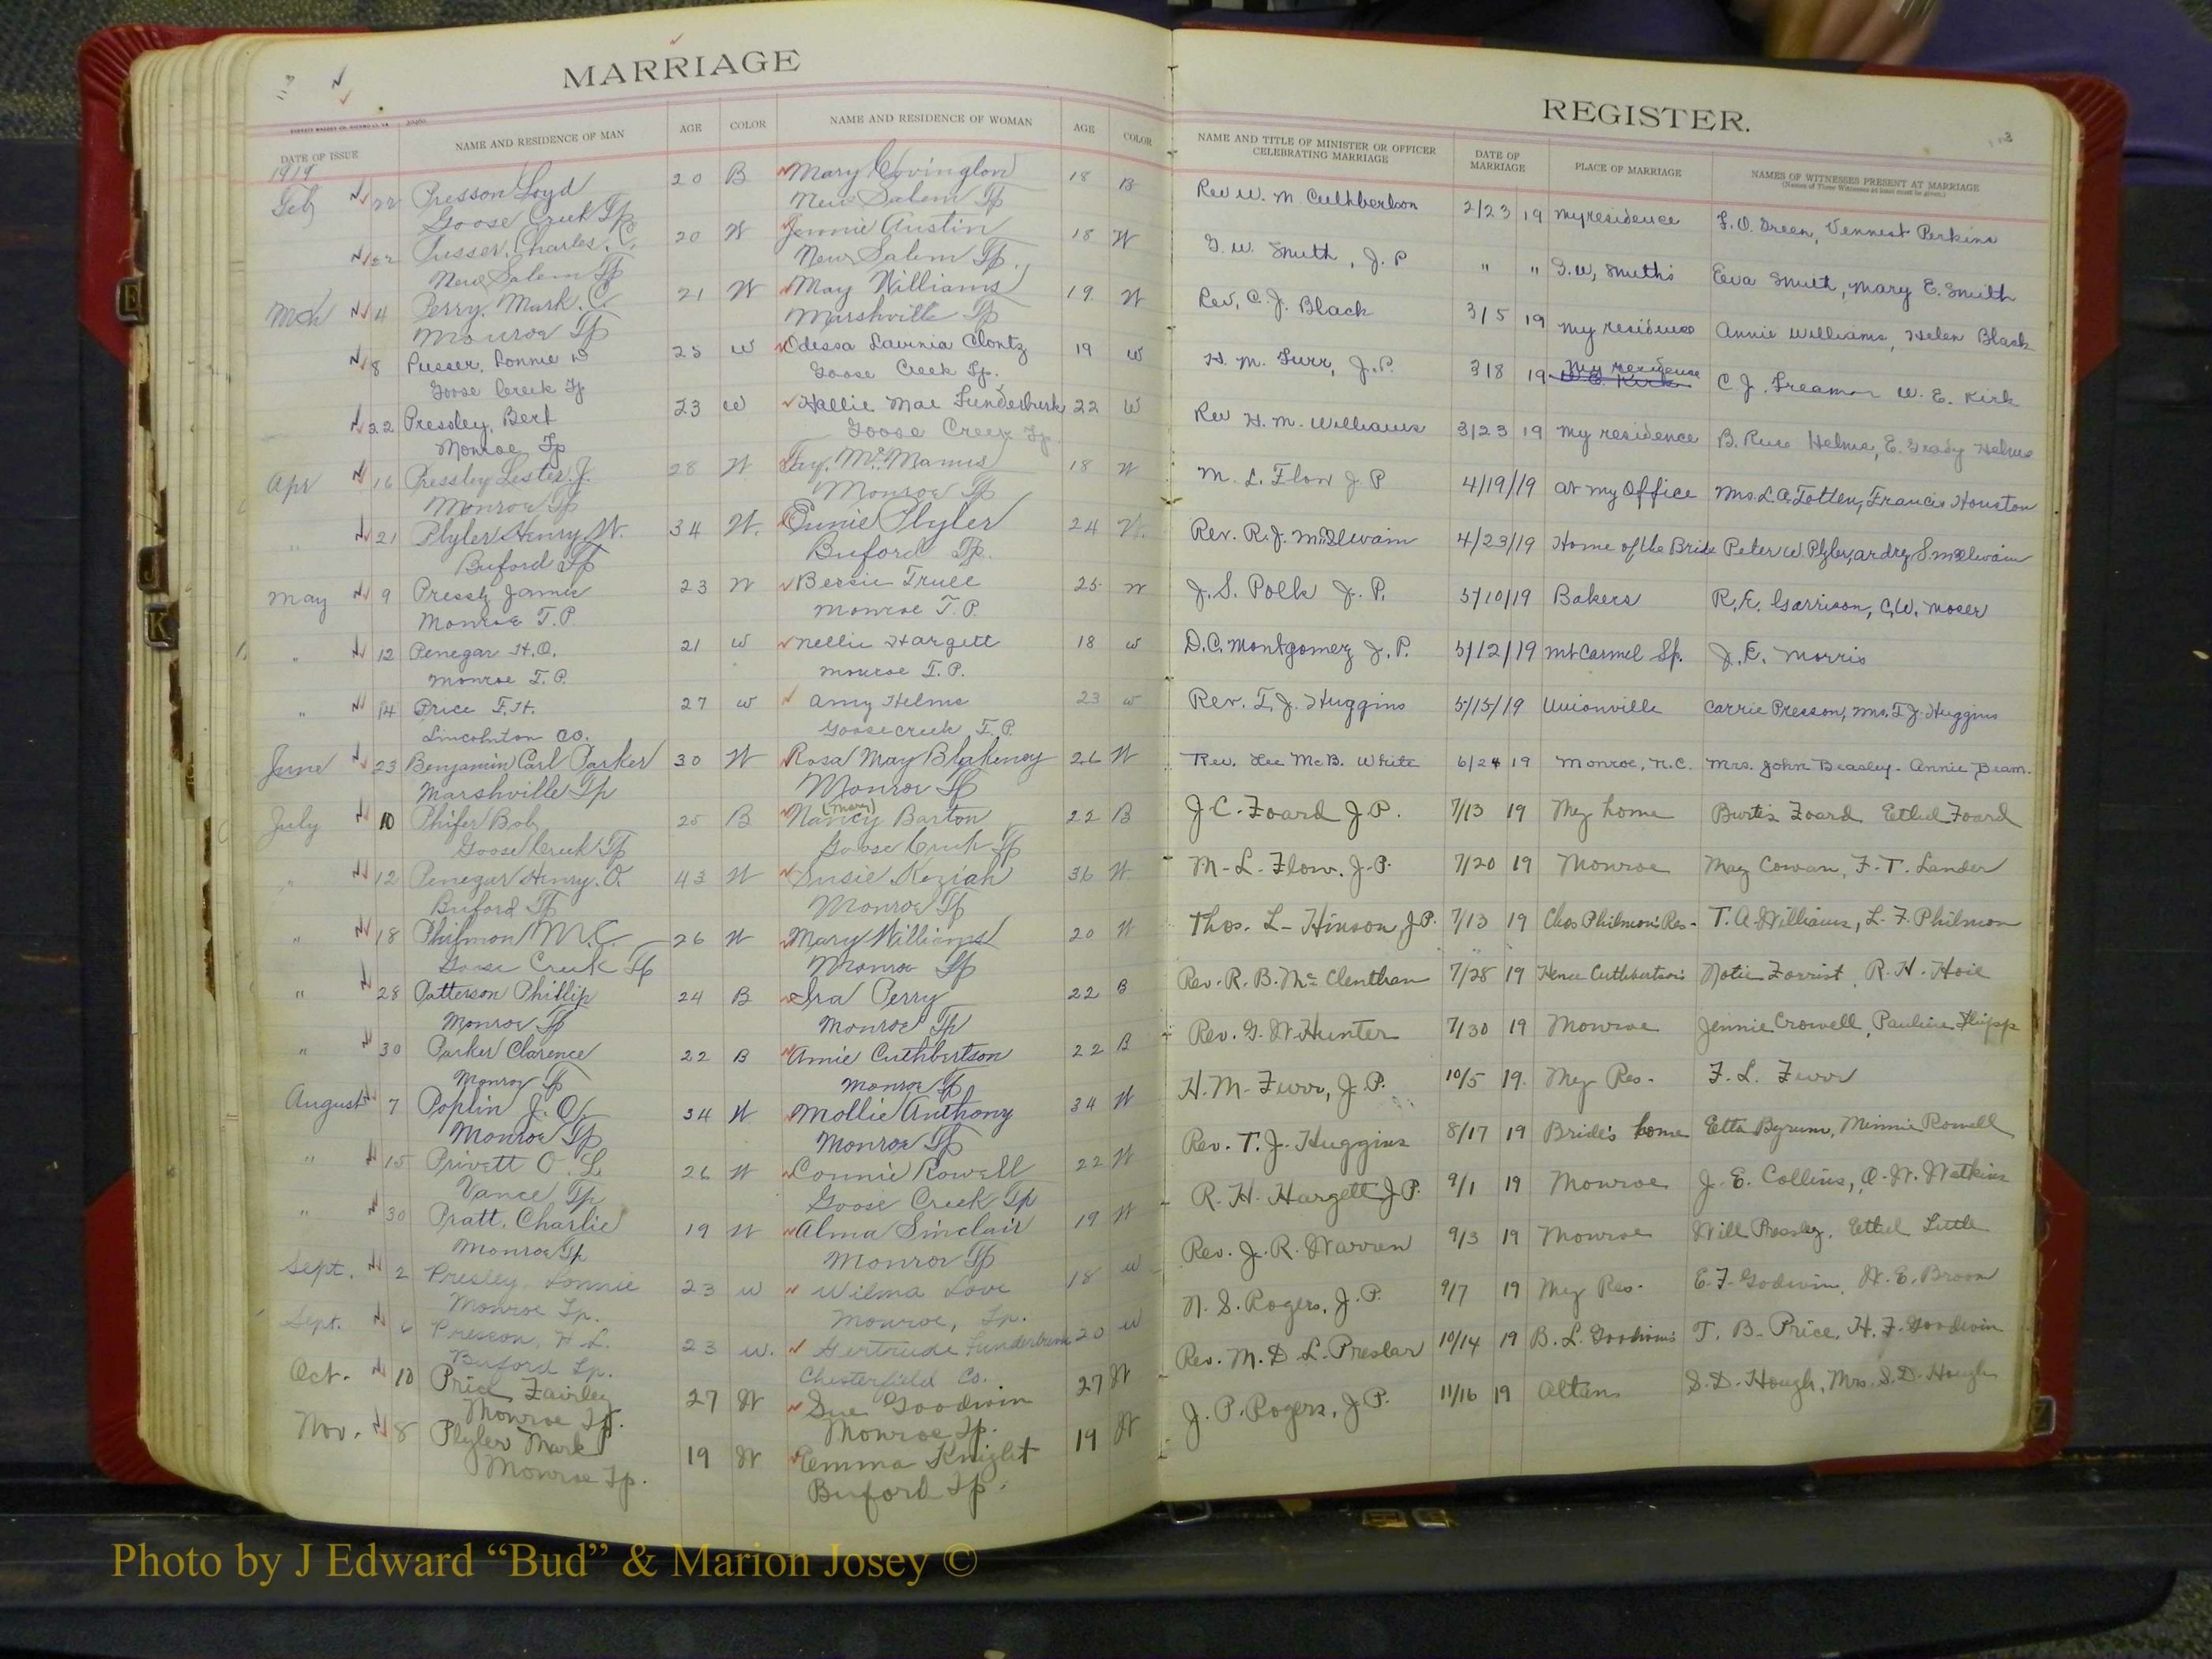 MARRIAGE
DATE OF ISSUE NAME AND RESIDENCE OF MAN AGE COLOR NAME AND RESIDENCE OF WOMAN AGE COLOR
1919
Feb 22 Presson Loyd 20 B Mary Covington 18 B
Goose Creek Tp New Salem Tp
22 Pusser, Charles, C. 20 W Jennie Austin 18 W
New Salem Tp New Salem Tp.
Mch 4 Perry, Mark. C. 21 W May Williams 19 W
Monroe Tp Marshville Tp
8 Pusser, Lonnie D 25 W Odessa Lavinia Clontz 19 W
Goose Creek Tp Goose Creek Tp.
22 Pressley, Bert 23 W Hallie Mae Funderburk 22 W
Monroe Tp Goose Creek Tp
Apr 16 Pressley Lester J. 28 W Fay. McManus 18 W
Monroe Tp Monroe Tp
" 21 Plyler Henry W. 34 W. Eunie Plyler 24 W.
Buford Tp Buford Tp.
May 9 Pressly James 23 W Bessie Trull 25 W
Monroe T.P. Monroe T.P.
" 12 Penegar H.O. 21 W Nellie Hargett 18 W
Monroe T.P. Monroe T.P.
" 14 Price F.H. 27 W Amy Helms 23 W
Lincolnton Co. Goosecreek T.P.
June 23 Benjamin Carl Parker 30 W Rosa May Blakeney 26 W
Marshville Tp Monroe Tp
(Mary)
July 10 Phifer Bob 25 B Nancy Barton 22 B
Goose Creek Tp Goose Creek Tp
" 12 Penegar Henry. O. 43 W Susie Keziah 36 W
Buford Tp Monroe Tp
" 18 Philmon M.C. 26 W Mary Williams 20 W
Goose Creek Tp Monroe Tp
" 28 Patterson Phillip 24 B Ira Perry 22 B
Monroe Tp Monroe Tp
" 30 Parker Clarence 22 B Amie Cuthbertson 22 B
Monroe Tp Monroe Tp
August 7 Poplin J. O. 34 W Mollie Anthony 34 W
Monroe Tp Monroe Tp
" 15 Privett O. L. 26 W Connie Rowell 22 W
Vance Tp Goose Creek Tp
" 30 Pratt, Charlie 19 W Alma Sinclair 19 W
Monroe Tp Monroe Tp
Sept. 2 Presley, Lonnie 23 W Wilma Love 18 W
Monroe Tp. Monroe, Tp.
Sept. 6 Presson, H. L. 23 W. Gertrude Funderburk 20 W
Buford Tp. Chesterfield Co.
Oct. 10 Price Fairley 27 W Sue Goodwin 27 W
Monroe Tp. Monroe Tp.
Nov. 8 Plyler Mark 19 W Emma Knight 19 W
Monroe Tp. Buford Tp.
REGISTER.
3
NAME AND TITLE OF MINISTER OR OFFICER CELEBRATING MARRIAGE DATE OF MARRIAGE PLACE OF MARRIAGE NAMES OF WITNESSES PRESENT AT MARRIAGE
(Names of Three Witnesses at least must be given.)
Rev W. M. Cuthbertson 2/23 19 My residence F. O. Green, Vennest Perkins
G. W. Smith, J. P " " G. W. Smith's Eva Smith, Mary E. Smith
Rev. C. J. Black 3/5 19 My residence Annie Williams, Helen Black
My residence
H. M. Furr, J.P. 3/8 19 W. E. Kirk C. J. Freeman W. E. Kirk
Rev H. M. Williams 3/23 19 My residence B. Russ Helms, E. Grady Helms
M. L. Flow J. P 4/19/19 at my Office Mrs. L. A. Totten, Francis Houston
Rev. R. J. McIlwain 4/23/19 Home of the Bride Peter W. Plyler, Ardrey S. McIlwain
J. S. Polk J. P. 5/10/19 Bakers R. E. Garrison, C. W. Moser
D. C. Montgomery J. P. 5/12/19 Mt Carmel Sp. J. E. Morris
Rev. T. J. Huggins 5/15/19 Unionville Carrie Presson, Mrs. T J. Huggins
Rev. Lee McB. White 6/24 19 Monroe, N.C. Mrs. John Beasley. Annie Beam.
J. C. Foard J. P. 7/13 19 My home Burtis Foard Ethel Foard
M. L. Flow, J. P. 7/20 19 Monroe May Cowan, F. T. Lander
Thos. L. Hinson, J.P. 7/13 19 Chas Philmon's Res. T. A. Williams, L. F. Philmon
Rev. R. B. McClenthan 7/28 19 Hence Cuthbertson's Notie Forrist, R. H. Hoie
Rev. G. W. Hunter 7/30 19 Monroe Jennie Crowell, Pauline Flipp
H. M. Furr, J. P. 10/5 19. My Res. F. L. Furr
Rev. T. J. Huggins 8/17 19 Bride's home Etta Byrum, Minnie Rowell
R. H. Hargett J P. 9/1 19 Monroe J. E. Collins, O. W. Watkins
Rev. J. R. Warren 9/3 19 Monroe Will Pressley, Ethel Little
N. S. Rogers, J. P. 9/7 19 My Res. E. F. Godwin, W. E. Broom
Rev. M. D L. Preslar 10/14 19 B. L. Goodwin's T. B. Price, H. F. Goodwin
J. P. Rogers, J. P. 11/16 19 Altan S. D. Hough, Mrs. S. D. Hough
E
J
K
Z
Photo by J Edward “Bud” & Marion Josey ©